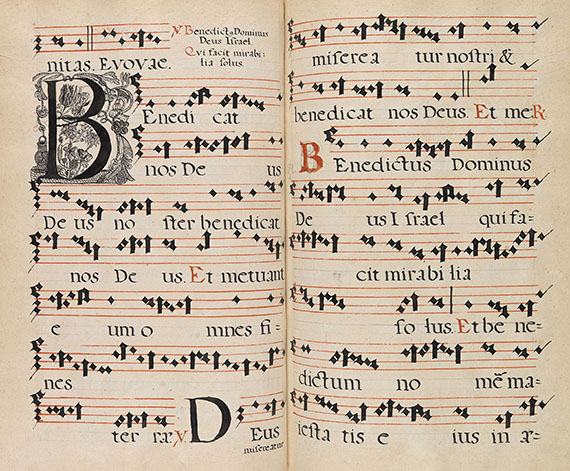 nitas. Evovae.
℣ Benedict9 Dominus
Deus Israel
Qui facit mirabi-
lia solus.
BEnedi cat
nos De us
De us no ster benedicat
nos De us. Et metuant
e um o mnes fi=
nes
ter ræ ℣ DEus
misereatur
miserea tur nostri &
benedicat nos Deus. Et me: ℟
BEnedictus Dominus
De us Israel qui fa=
cit mirabi lia
so lus. Et be ne=
dictum no mē ma=
iesta tis e ius in æ=